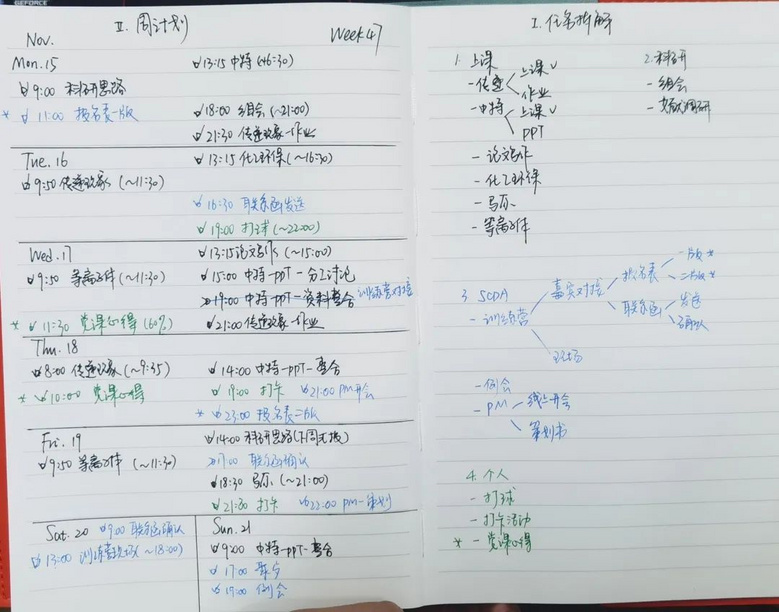 GEFORCE
II. 周计划
Nov.
Week 47
Mon. 15
9:00 科研思路
* 11:00 报名表一版
13:15 中特 (~16:30)
18:00 组会 (~21:00)
21:30 传递现象-作业
Tue. 16
9:50 传递现象 (~11:30)
13:15 化工环保 (~16:30)
16:30 联系函发送
19:00 打球 (~22:00)
Wed. 17
9:50 等离子体 (~11:30)
* 11:30 党课心得 (60%)
13:15 论文写作 (~15:00)
15:00 中特-PPT-分工讨论
19:00 中特-PPT-资料整合 训练营对接
21:00 传递现象-作业
Thu. 18
8:00 传递现象 (~9:35)
* 10:00 党课心得
14:00 中特-PPT-整合
19:00 打卡 21:00 PM开会
* 23:00 报名表二版
Fri. 19
9:50 等离子体 (~11:30)
14:00 科研思路
17:00 联系函确认
18:30 马原 (~21:00)
21:30 打卡 22:00 PM-策划
Sat. 20 9:00 联系函确认
13:00 训练营现场 (~18:00)
Sun. 21
9:00 中特-PPT-整合
17:00 聚餐
19:00 例会
I. 任务拆解
1. 上课
- 传递 上课 ✓
作业
- 中特 上课 ✓
PPT
- 论文写作
- 化工环保
- 马原
- 等离子体
2. 科研
- 组会
- 文献调研
3. SCDA
- 训练营 嘉宾对接 报名表 一版 *
二版 *
联系函 发送
确认
现场
- 例会
- PM 线上开会
策划书
4. 个人
- 打球
- 打卡活动
* - 党课心得